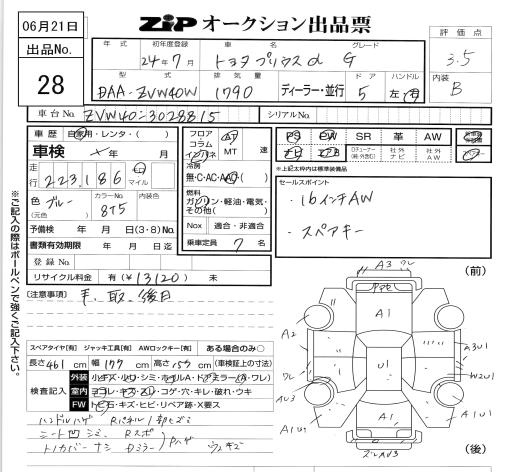 06月21日
出品No.
28
ZiP オークション出品票
年式 初年度登録 車名 グレード
24年7月 トヨタプリウスα G
型式 排気量 ドア ハンドル
DAA-ZVW40W 1790 ディーラー・並行 5 左・右
評価点
3.5
内装
B
車台No. ZVW40-3028815 シリアルNo.
車歴 自家用・レンタ・( )
車検 年 月
走行 223,186 km マイル
色 ブルー
(元色)
カラーNo. 8T5
内装色
予備検 年 月 日(3・8)No.
書類有効期限 年 月 日迄
登録No.
リサイクル料金 有(¥13120) 未
フロア AT
コラム
インパネ MT 速
冷房
無・C・AC・AAC
燃料
ガソリン・軽油・電気・
その他( )
Nox 適合・非適合
乗車定員 7 名
PS PW SR 革 AW
社外ナビ 社外AW
※上記太枠内は標準装備品
セールスポイント
・16インチAW
・スペアキー
〔注意事項〕 手、取、後日
スペアタイヤ[有] ジャッキ工具[有] AWロックキー[有] ある場合のみ○
長さ461cm 幅177cm 高さ157cm (車検証上の寸法)
検査記入
外装 小キズ・小ワ・シミ・ホイルA・ドアミラー(A・ワレ)
室内 ヨゴレ・キズ・スレ・コゲ・穴・キレ・破れ・ウキ
FW トビ石・キズ・ヒビ・リペア跡・X要ス
ハンドルハゲ Rパネル1部セズミ
シート凹シミ Rスポ
トノカバーナシ Dミラー
ハゲ ウスキズ
※ご記入の際はボールペンで強くご記入下さい。
(前)
A3 ワレ
A1
A2
ワレ
AU3
A1U1
U1
A3U1
W2U1
A1U1
A1
ズレAU3
(後)